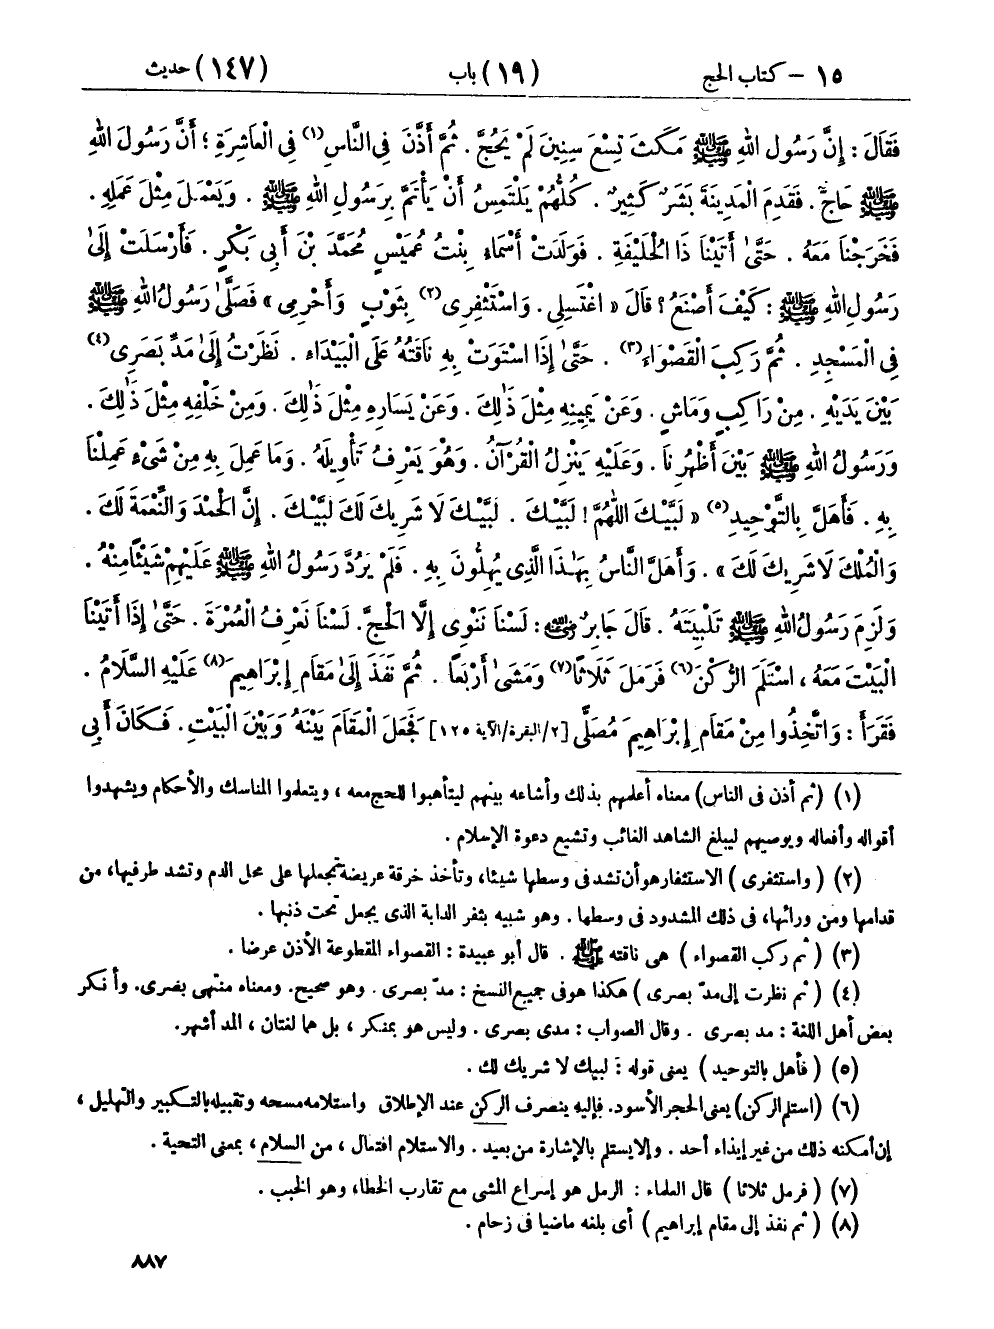 ١٥ – كتاب الحج (١٩) باب (١٤٧) حديث
فَقَالَ : إِنَّ رَسُولَ اللهِ ﷺ مَكَثَ تِسْعَ سِنِينَ لَمْ يَحُجَّ . ثُمَّ أَذَّنَ فِي النَّاسِ(١) فِي الْعَاشِرَةِ ؛ أَنَّ رَسُولَ اللهِ
ﷺ حَاجٌّ . فَقَدِمَ الْمَدِينَةَ بَشَرٌ كَثِيرٌ . كُلُّهُمْ يَلْتَمِسُ أَنْ يَأْتَمَّ بِرَسُولِ اللهِ ﷺ . وَيَعْمَلَ مِثْلَ عَمَلِهِ .
فَخَرَجْنَا مَعَهُ . حَتَّىٰ أَتَيْنَا ذَا الْحُلَيْفَةِ . فَوَلَدَتْ أَسْمَاءِ بِنْتُ عُمَيْسٍ مُحَمَّدَ بْنَ أَبِي بَكْرٍ . فَأَرْسَلَتْ إِلَىٰ
رَسُولِ اللهِ ﷺ : كَيْفَ أَصْنَعُ ؟ قَالَ « اغْتَسِلِى . وَاسْتَثْفِرِى(٢) بِثَوْبٍ وَأَحْرِمِى » فَصَلَّىٰ رَسُولُ اللهِ ﷺ
فِي الْمَسْجِدِ . ثُمَّ رَكِبَ الْقَصْوَاءَ(٣) . حَتَّىٰ إِذَا اسْتَوَتْ بِهِ نَاقَتُهُ عَلَى الْبَيْدَاءِ . نَظَرْتُ إِلَىٰ مَدِّ بَصَرِى(٤)
بَيْنَ يَدَيْهِ . مِنْ رَاكِبٍ وَمَاشٍ . وَعَنْ يَمِينِهِ مِثْلَ ذَٰلِكَ . وَعَنْ يَسَارِهِ مِثْلَ ذَٰلِكَ . وَمِنْ خَلْفِهِ مِثْلَ ذَٰلِكَ .
وَرَسُولُ اللهِ ﷺ بَيْنَ أَظْهُرِنَا . وَعَلَيْهِ يَنْزِلُ الْقُرْآنُ . وَهُوَ يَعْرِفُ تَأْوِيلَهُ . وَمَا عَمِلَ بِهِ مِنْ شَيْءٍ عَمِلْنَا
بِهِ . فَأَهَلَّ بِالتَّوْحِيدِ(٥) « لَبَّيْكَ اللَّهُمَّ ! لَبَّيْكَ . لَبَّيْكَ لَا شَرِيكَ لَكَ لَبَّيْكَ . إِنَّ الْحَمْدَ وَالنِّعْمَةَ لَكَ .
وَالْمُلْكَ لَا شَرِيكَ لَكَ » . وَأَهَلَّ النَّاسُ بِهَٰذَا الَّذِى يُهِلُّونَ بِهِ . فَلَمْ يَرُدَّ رَسُولُ اللهِ ﷺ عَلَيْهِمْ شَيْئًا مِنْهُ .
وَلَزِمَ رَسُولُ اللهِ ﷺ تَلْبِيَتَهُ . قَالَ جَابِرٌ رضي الله عنه : لَسْنَا نَنْوِى إِلَّا الْحَجَّ . لَسْنَا نَعْرِفُ الْعُمْرَةَ . حَتَّىٰ إِذَا أَتَيْنَا
الْبَيْتَ مَعَهُ ، اسْتَلَمَ الرُّكْنَ(٦) فَرَمَلَ ثَلَاثًا(٧) وَمَشَىٰ أَرْبَعًا . ثُمَّ نَفَذَ إِلَىٰ مَقَامِ إِبْرَاهِيمَ(٨) عَلَيْهِ السَّلَامُ .
فَقَرَأَ : وَاتَّخِذُوا مِنْ مَقَامِ إِبْرَاهِيمَ مُصَلًّى [٢/البقرة/الآية ١٢٥] فَجَعَلَ الْمَقَامَ بَيْنَهُ وَبَيْنَ الْبَيْتِ . فَكَانَ أَبِي
(١) (ثم أذن فى الناس) معناه أعلمهم بذلك وأشاعه بينهم ليتأهبوا للحج معه ، ويتعلموا المناسك والأحكام ويشهدوا
أقواله وأفعاله ويوصيهم ليبلغ الشاهد الغائب وتشيع دعوة الإسلام .
(٢) ( واستثفرى ) الاستثفار هو أن تشد فى وسطها شيئا، وتأخذ خرقة عريضة تجعلها على محل الدم وتشد طرفيها، من
قدامها ومن ورائها، فى ذلك المشدود فى وسطها . وهو شبيه بثفر الدابة الذى يجعل تحت ذنبها .
(٣) ( ثم ركب القصواء ) هى ناقته ﷺ . قال أبو عبيدة : القصواء المقطوعة الأذن عرضا .
(٤) ( ثم نظرت إلى مدّ بصرى ) هكذا هو فى جميع النسخ : مدّ بصرى . وهو صحيح. ومعناه منتهى بصرى. وأنكر
بعض أهل اللغة : مد بصرى . وقال الصواب : مدى بصرى . وليس هو بمنكر ، بل هما لغتان ، المد أشهر.
(٥) ( فأهل بالتوحيد ) يعنى قوله : لبيك لا شريك لك .
(٦) (استلم الركن) يعنى الحجر الأسود. فإليه ينصرف الركن عند الإطلاق واستلامه مسحه وتقبيله بالتكبير والتهليل ،
إن أمكنه ذلك من غير إيذاء أحد . وإلا يستلم بالإشارة من بعيد . والاستلام افتعال ، من السلام ، بمعنى التحية .
(٧) ( فرمل ثلاثا ) قال العلماء : الرمل هو إسراع المشى مع تقارب الخطا، وهو الخبب .
(٨) ( ثم نفذ إلى مقام إبراهيم ) أى بلغه ماضيا فى زحام .
٨٨٧